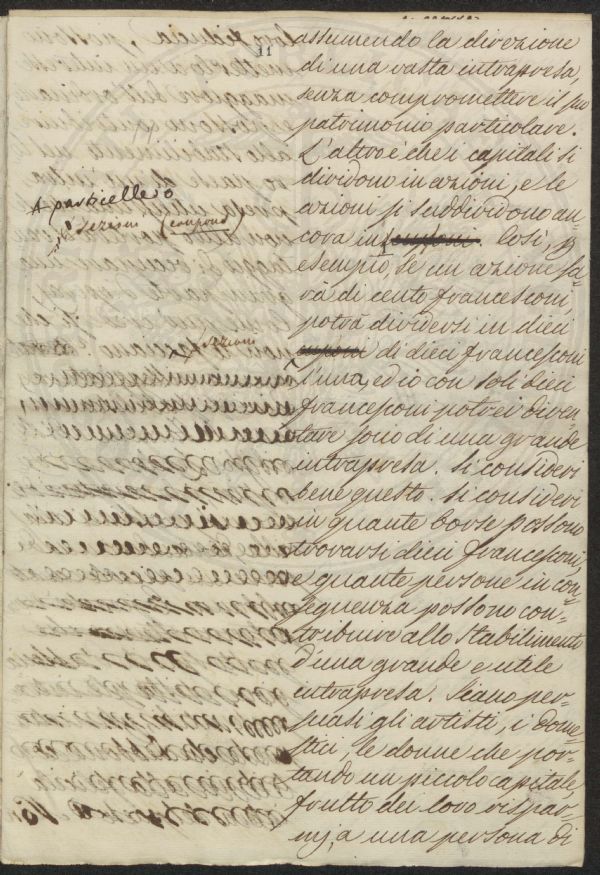 11
assumendo la direzione
di una vasta intrapresa,
senza compromettere il suo
patrimonio particolare.
L'altro è che i capitali si
dividono in azioni, e le
azioni si suddividono an-
cora in cuponi. Così, p
esempio, se un azione sa-
rà di cento francesconi,
potrà dividersi in dieci
cuponi di dieci francesconi
l'una, ed io con soli dieci
francesconi potrei diven-
tare socio di una grande
intrapresa. Si consideri
bene questo. Si consideri
in quante borse possono
trovarsi dieci francesconi,
e quante persone in con-
seguenza possono con-
tribuire allo stabilimento
d'una grande e utile
intrapresa. Siano per-
suasi gli artisti, i dome-
stici, le donne che por-
tando un piccolo capitale,
frutto dei loro rispar-
mj, a una persona di
A particelle o
sezioni (coupons)
sezioni